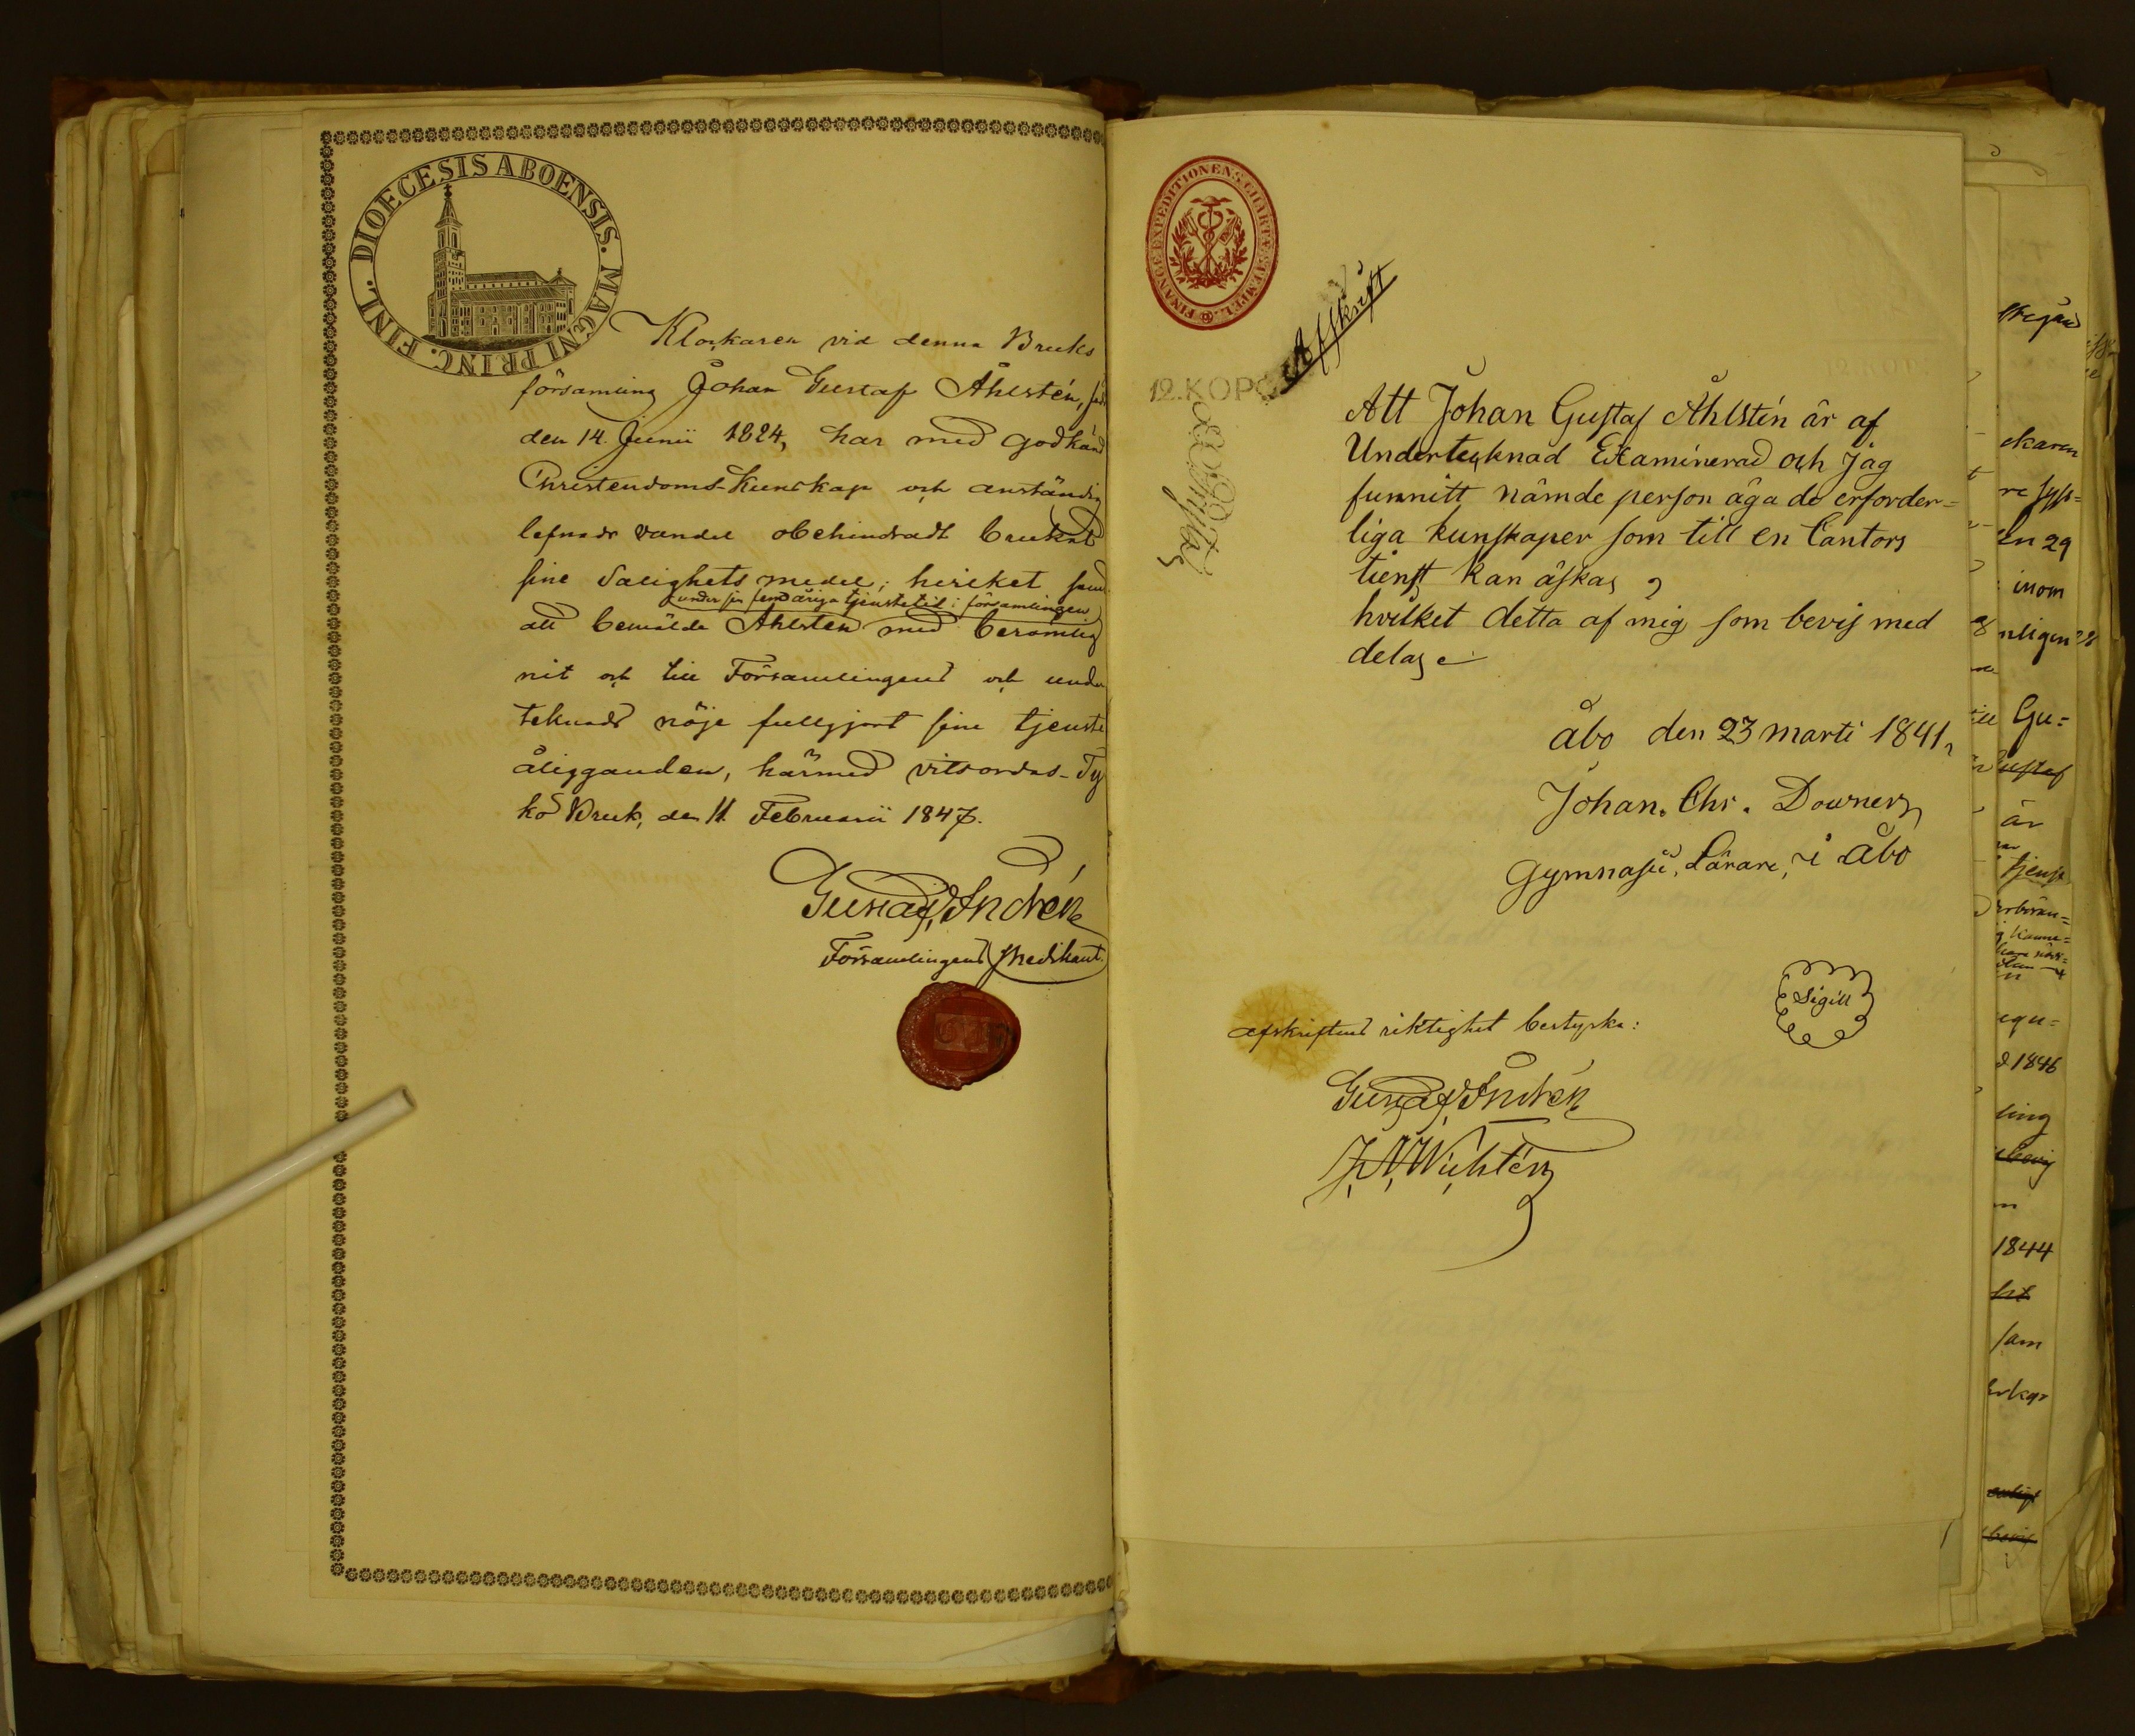 DIOECESIS ABOENSIS. MAGNI PRINC. FINL.
Klockaren vid denna Bruks
församling Johan Gustaf Åhlstén, född
den 14. Junii 1824, har med godkänd
Christendoms-Kunskap och anständig
lefnads vandel obehindradt brukat
sine Salighets medel; hvilket samt
under sin femåriga tjenstetid i församlingen
att bemälde Åhlsten med berömlig
nit och till Församlingens och under
teknads nöje fullgjort sine tjenste
åligganden, härmed vitsordas. Ty
kö Bruk, den 11. Februarii 1847.
Gustaf Andrén
Församlingens Predikant.
FINANCE EXPEDITIONENS CHARTÆ STEMPEL
12. KOP. S
Afskrift
Att Johan Gustaf Åhlstén är af
Undertecknad Examinerad och Jag
funnitt nämde person äga de erforder=
liga kunskaper som till en Cantors
tienst kan äskas,
hvilket detta af mig som bevis med
delas
Åbo den 23 marti 1841,
Johan. Chr. Downer
Gymnasii, Lärare, i Åbo
Sigill
afskriftens riktighet bestyrka:
Gustaf Andrén
J. N. Wichtén
ekaren
en 29
inom
nligen
till Gu=
ustaf
är
tjenst
equ=
d 1846
ling
bevis
1844
sam
bevis